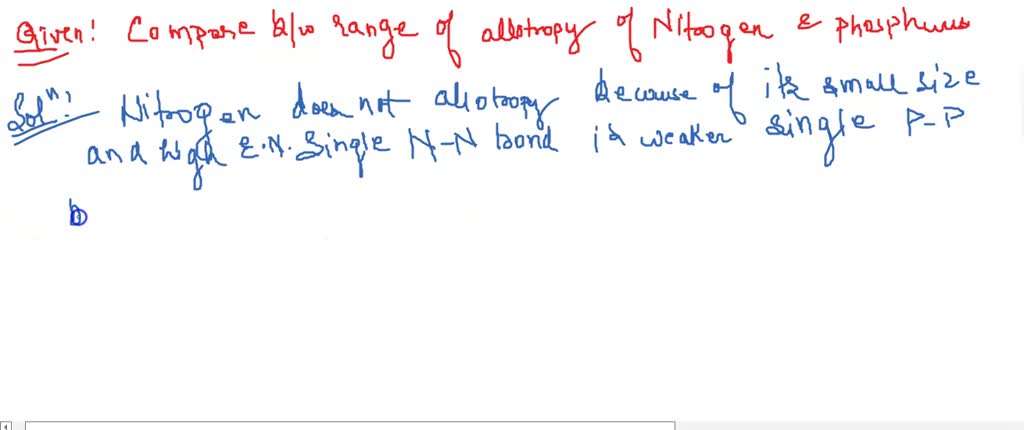 Given! Compare b/w range of allotropy of Nitrogen & phosphurus
Solⁿ: Nitrogen does not allotropy because of its small size
and high E.N. Single N-N bond is weaker single P-P
b